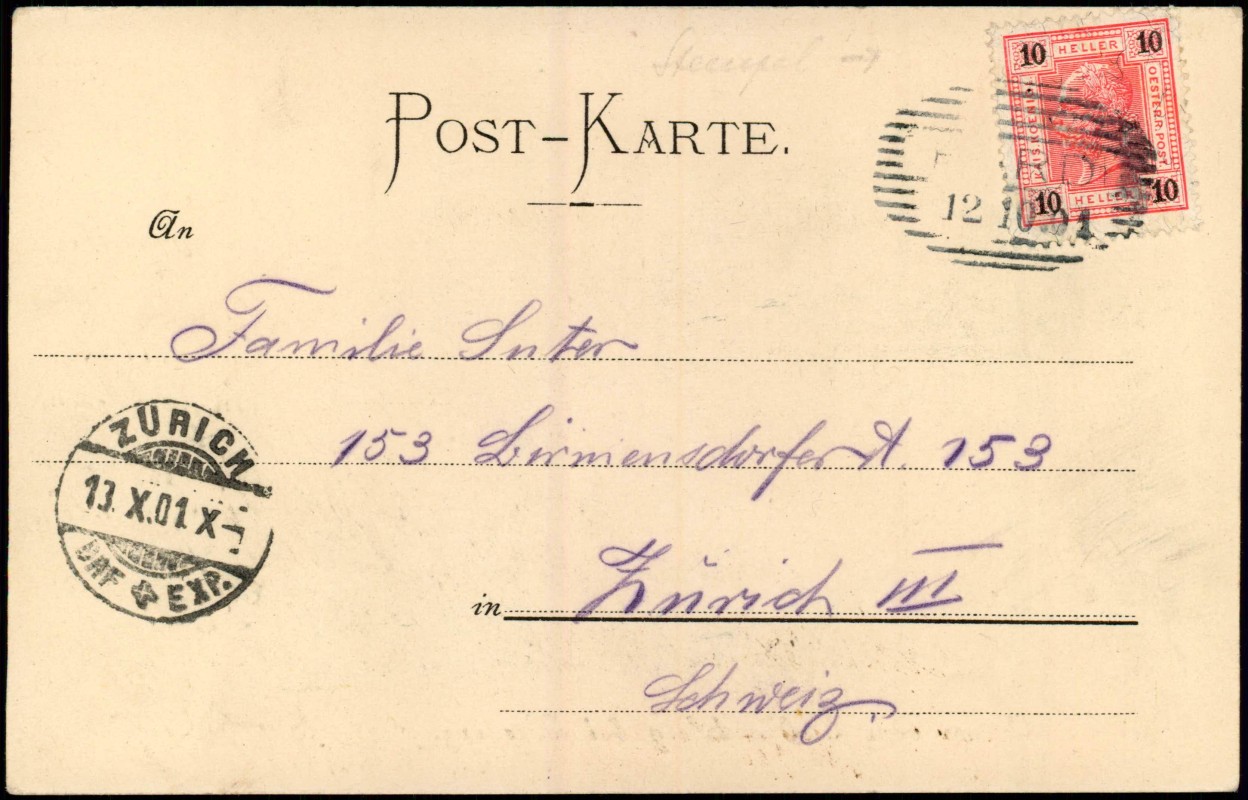 Stempel →
10 HELLER 10
KAIS. KOENIGL. OESTERR. POST
10 HELLER 10
POST-KARTE.
12 10 01
An
Familie Suter
153 Birmensdorferst. 153
ZÜRICH
13. X.01 X-
BRF EXP.
in Zürich III
Schweiz